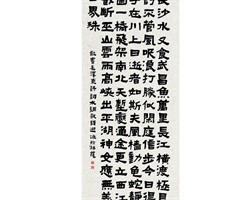 長沙水又食武昌魚萬里長江橫渡極目
舒不管風吹浪打勝似閒庭信步今日得
子在川上曰逝者如斯夫風檣動龜蛇静
圖一橋飛架南北天塹變通途更立西江
截斷巫山雲雨高峽出平湖神女應無恙
世界殊
敬書毛澤東詩詞水調歌頭游泳